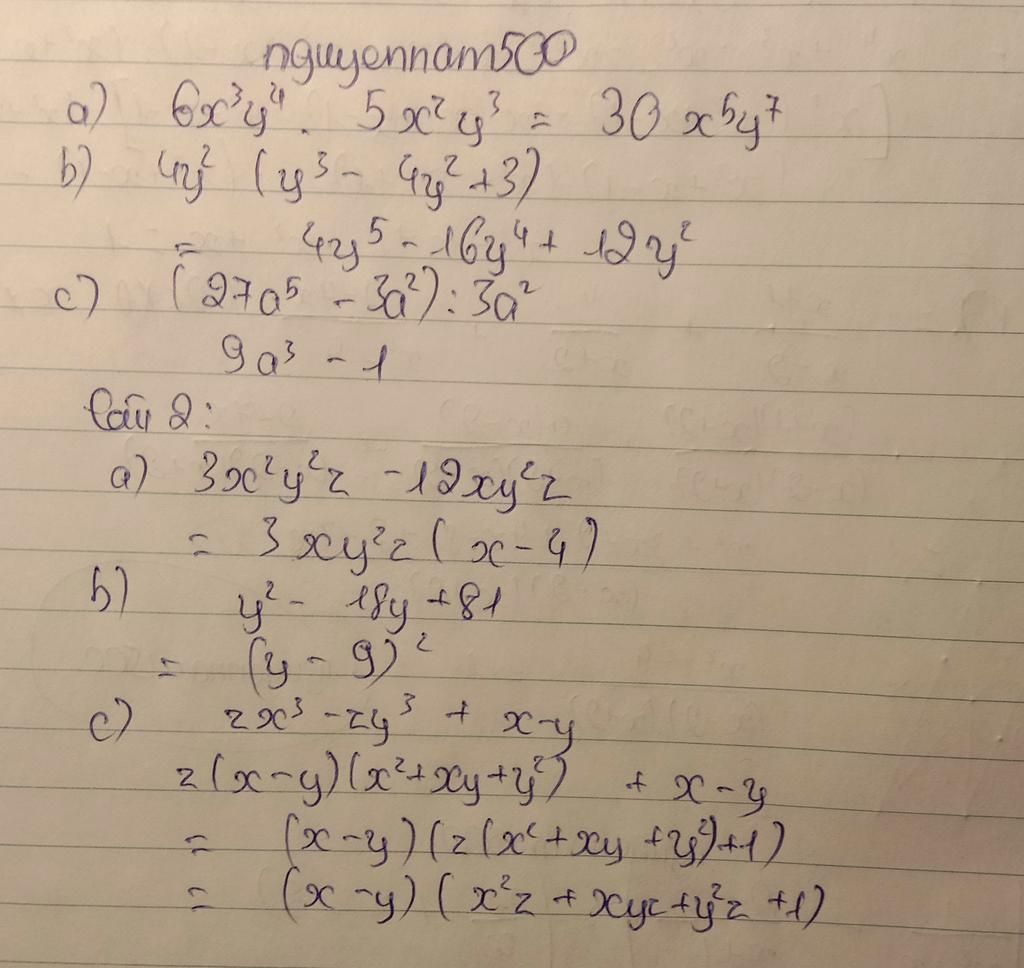 nguyennam500
a) 6x³y⁴ . 5x²y³ = 30 x⁵y⁷
b) 4y² (y³ - 4y² + 3)
= 4y⁵ - 16y⁴ + 12y²
c) (27a⁵ - 3a²) : 3a²
9a³ - 1
Bài 2:
a) 3x²y²z - 12xy²z
= 3xy²z (x - 4)
b) y² - 18y + 81
= (y - 9)²
c) zx³ - zy³ + x - y
z(x - y)(x² + xy + y²) + x - y
= (x - y)(z(x² + xy + y²) + 1)
= (x - y)(x²z + xyz + y²z + 1)